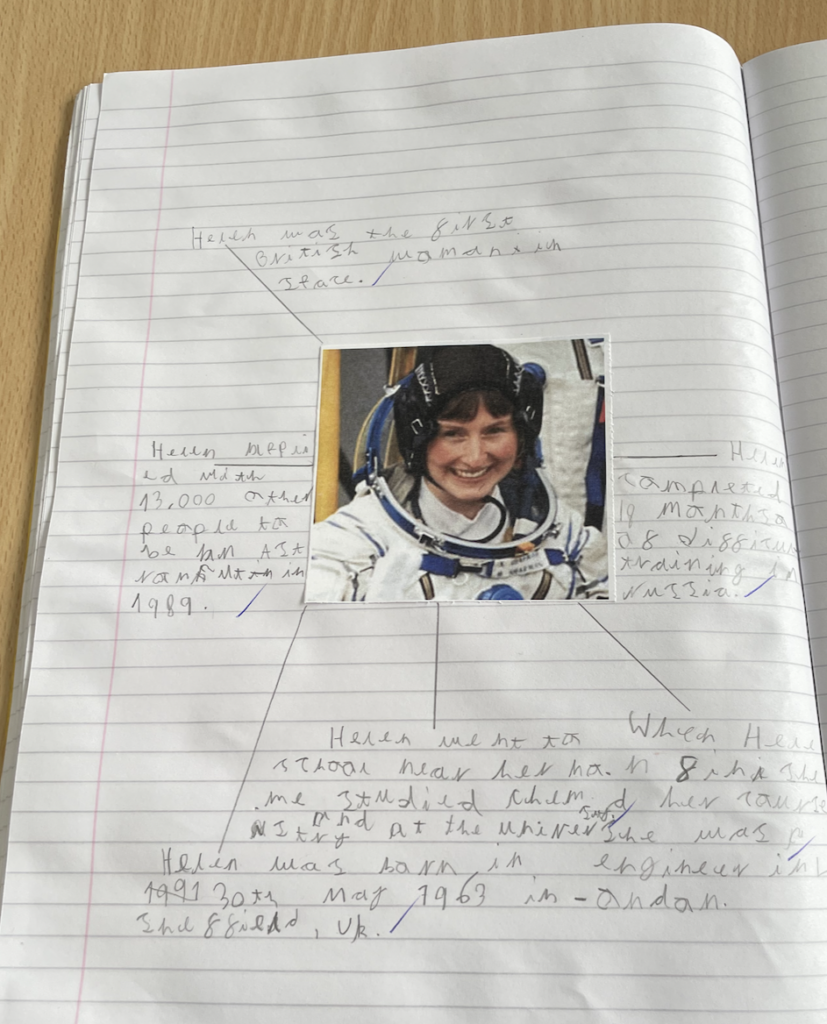 Helen was the first
British woman in
space.
Helen applied
with
13,000 other
people to
be an Ast
ronaut in
1989.
Helen
completed
months
of
training in
russia.
Helen went to
school near her ho
me studied Chem
istry and at the univer
When Hele
finishe
d her course
she was
engineer in
London.
Helen was born in
1991 30th May 1963 in
UK.